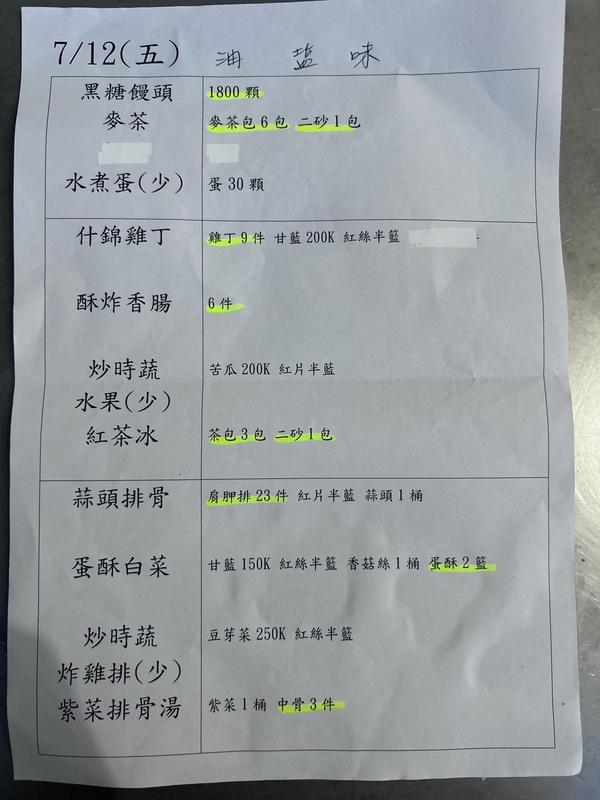 7/12(五) 油 盐 味
黑糖饅頭 1800 顆
麥茶 麥茶包 6 包 二砂 1 包
水煮蛋(少) 蛋 30 顆
什錦雞丁 雞丁 9 件 甘藍 200K 紅絲半籃
酥炸香腸 6 件
炒時蔬 苦瓜 200K 紅片半籃
水果(少)
紅茶冰 茶包 3 包 二砂 1 包
蒜頭排骨 肩胛排 23 件 紅片半籃 蒜頭 1 桶
蛋酥白菜 甘藍 150K 紅絲半籃 香菇絲 1 桶 蛋酥 2 籃
炒時蔬 豆芽菜 250K 紅絲半籃
炸雞排(少)
紫菜排骨湯 紫菜 1 桶 中骨 3 件